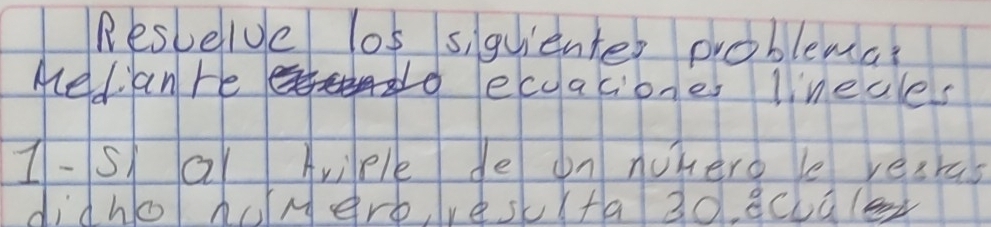 Resuelve los siguientes problemas
Mediante ecuaciones lineales
1-Si al triple de un número le restas
dicho número, resulta 30. ¿Cuál es